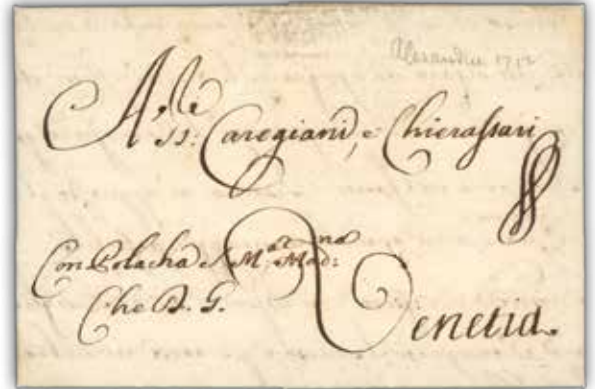 Alexandria 1712
All.i
SS: Caregiani, e Chierassari
Con Polacha S M.a Mad:na
Che B. G. Venetia.